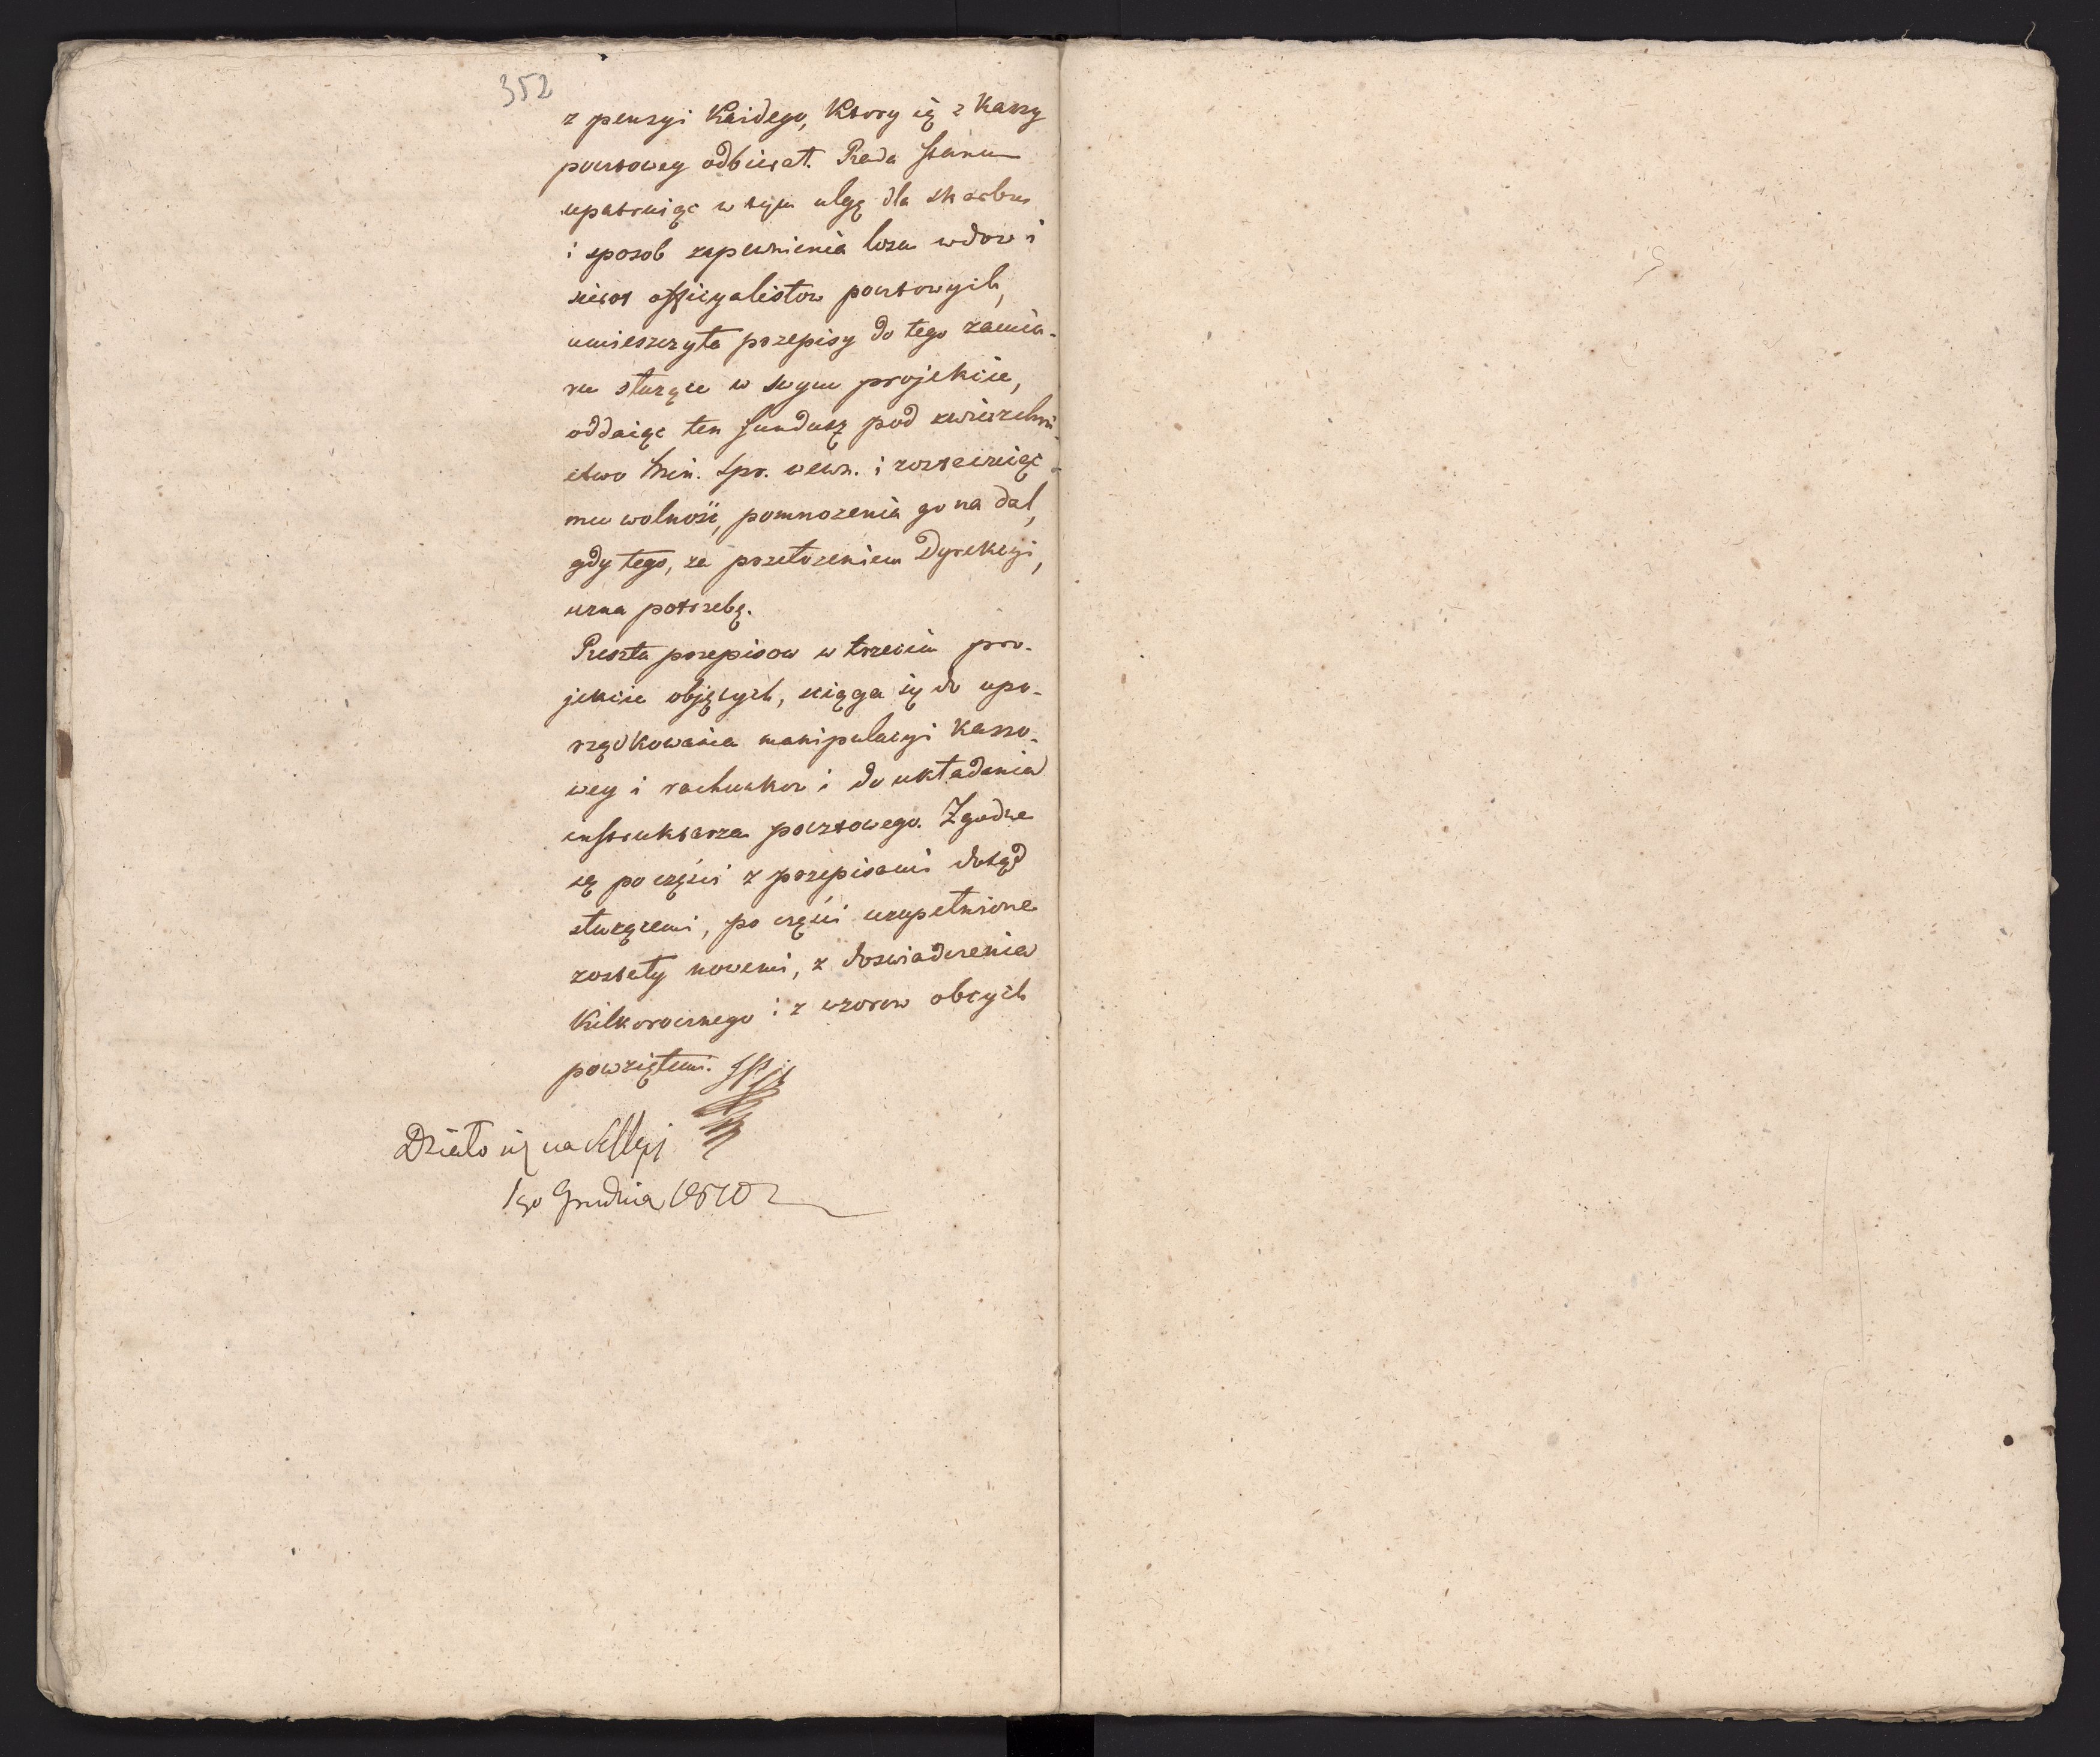 352
z pensyi Kaidego, Ktory ię z Kassy
pocztowey odbierał. Rada stanu
upatruiąc w tym ulgę dla skarbu
i sposob zapewnienia losu wdow i
sierot officyalistow pocztowych,
umieszczyła przepisy do tego zamia-
ru służące w swym projekcie,
oddaiąc ten fundusz pod zwierzchni-
ctwo Min. Spr. wewn. i zostawuiąc
mu wolność, pomnożenia go na dal,
gdy tego, za przełożeniem Dyrekcyi,
uzna potrzebę.
Reszta przepisow w trzecim pro-
jekcie objętych, sciąga się do upo-
rządkowania manipulacyi Kasso-
wey i rachunkow i do układania
instruktarza pocztowego. Zgodne
są po części z przepisami dotąd
służącemi, po części uzupełnione
zostały nowemi, z doswiadczenia
Kilkorocznego i z wzorow obcych
powziętemi.
Działo się na Sessyi
1go Grudnia 1810 r